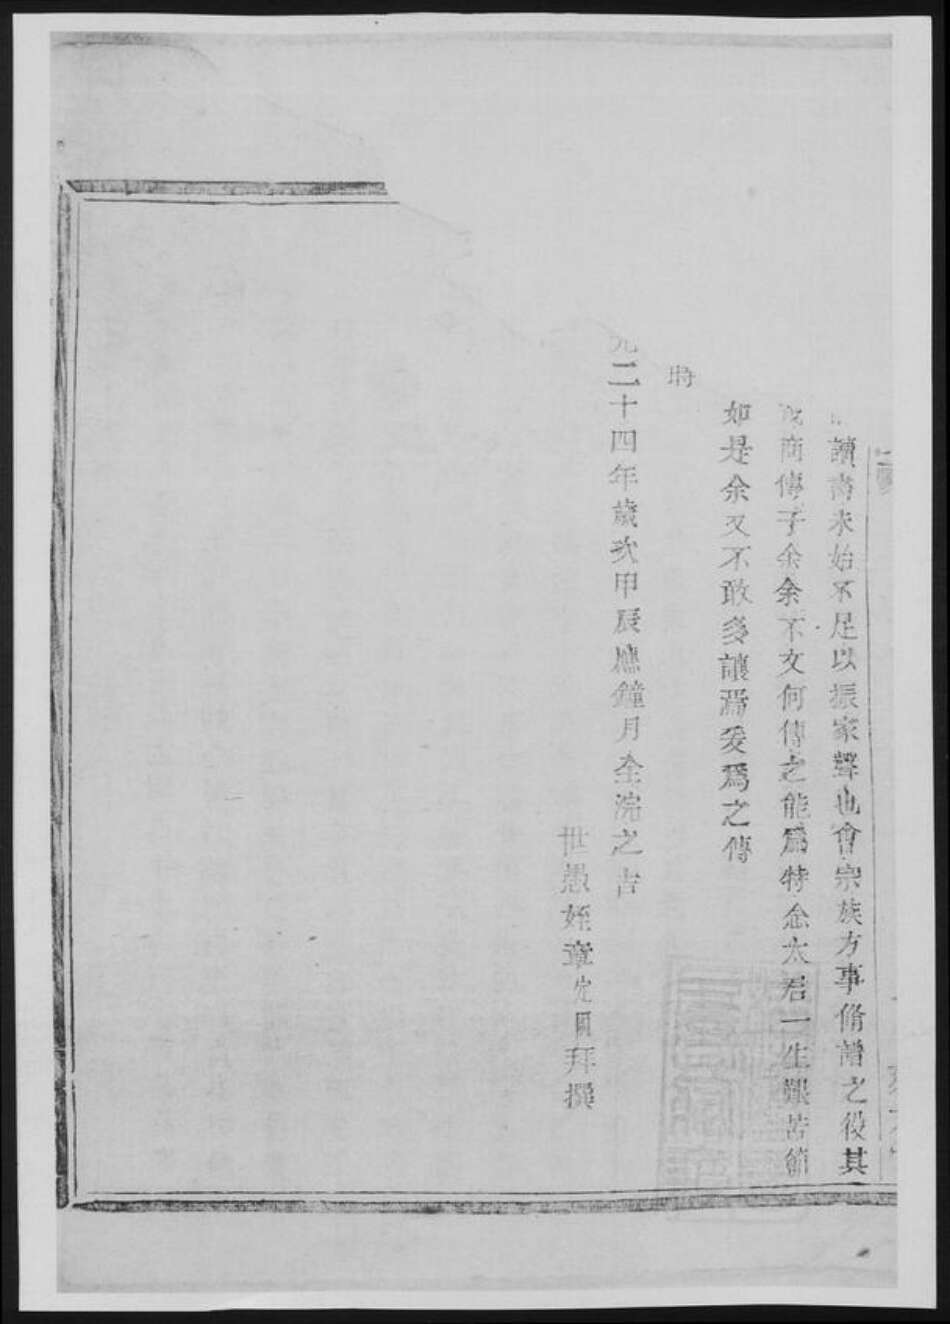 讀書未始不足以振家聲也會宗族方事脩譜之役其
商傳予余余不文何傳之能爲特念太君一生艱苦節
如是余又不敢多讓焉爰爲之傳
時
光二十四年歲次甲辰應鐘月全浣之吉
世愚姪章定周拜撰